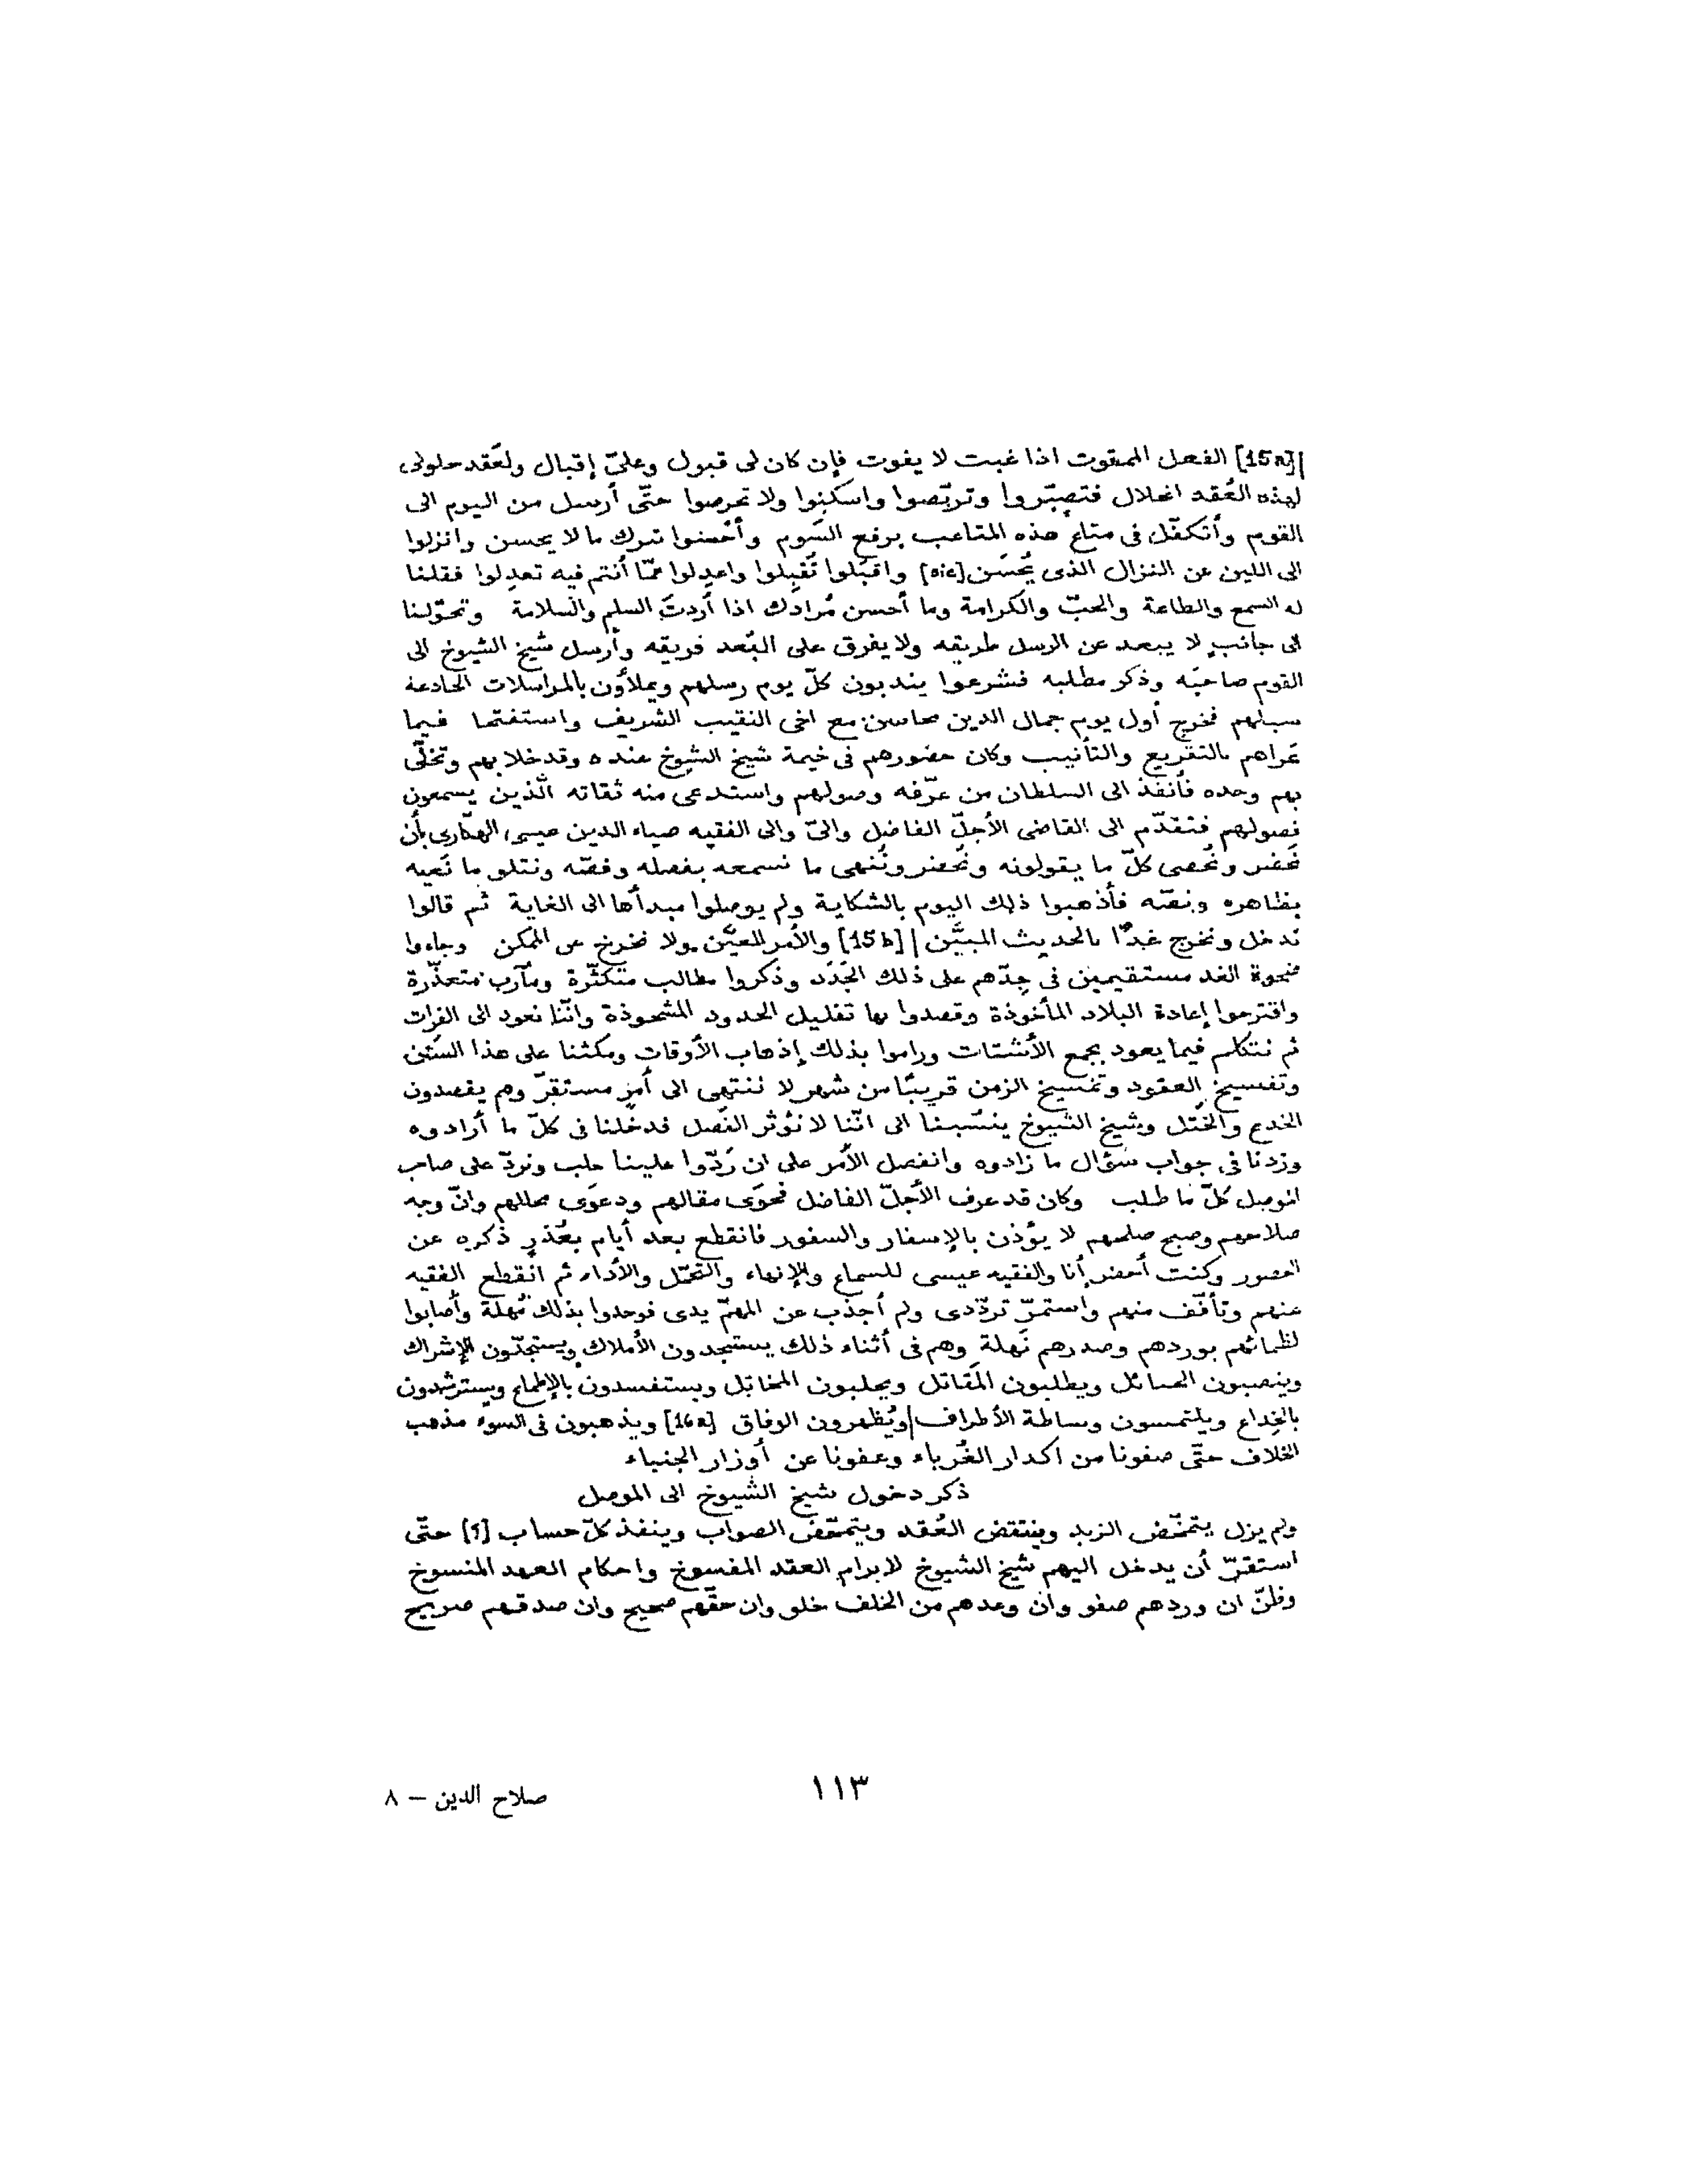 [15a] الفعل الممقوت اذا غبت لا يفوت فإن كان لى قبول وعلىّ إقبال ولعَقد حلولى
لهذه العُقد انحلال فتصبّروا وتربّصوا واسكنوا ولا تحرصوا حتّى أرسل من اليوم الى
القوم وأتكفّل فى متاع هذه المتاعب برفع السَّوم وأحْسنوا بترك ما لا يحسن وانزلوا
الى اللين عن النزال الذى يُحسَن [sic] واقبَلوا تُقبِلوا واعدِلوا عمّا أنتم فيه تعدِلوا فقلنا
له السمع والطاعة والحبّ والكرامة وما أحسن مُرادك اذا أردتَ السلم والسلامة وتحوّلنا
الى جانبٍ لا يبعد عن الرسل طريقه ولا يفرق على البُعد فريقه وأرسل شيخ الشيوخ الى
القوم صاحبَه وذكر مطلبه فشرعوا يندبون كلّ يوم رسلهم ويملأون بالمراسلات الخادعة
سبلهم فخرج أول يوم جمال الدين محاسن مع اخى النقيب الشريف واستفتحا فيما
عَراهم بالتقريع والتأنيب وكان حضورهم فى خيمة شيخ الشيوخ عنده وقد خلا بهم وتخلّى
بهم وحده فأنفذ الى السلطان من عرّفه وصولهم واستدعى منه ثقاته الّذين يسمعون
فصولهم فتقدّم الى القاضى الأجلّ الفاضل والىّ والى الفقيه ضياء الدين عيسى الهكّارى بأن
نَحضر ونُحصى كلّ ما يقولونه ونُحضر ونُنهى ما نسمعه بفصله وفصّه ونتلو ما نَعيه
بظاهره ونصّه فأذهبوا ذلك اليوم بالشكاية ولم يوصلوا مبدأها الى الغاية ثم قالوا
ندخل ونخرج غدًا بالحديث المبيَّن [15b] والأمر المعيَّن ولا نخرج عن الممكن وجاءوا
ضحوة الغد مستقيمين فى جِدّهم على ذلك الجَدَد وذكروا مطالب متكثّرة ومآرب متعذّرة
واقترحوا إعادة البلاد المأخوذة وقصدوا بها تفليل الحدود المشحوذة وانّنا نعود الى الفرات
ثم نتكلم فيما يعود بجمع الأشتات وراموا بذلك إذهاب الأوقات ومكثنا على هذا السَّنن
وتفسيخ العقود وتفسيخ الزمن قريبًا من شهر لا ننتهى الى أمرٍ مستقرّ وهم يقصدون
الخدع والخَتل وشيخ الشيوخ ينسُبنا الى انّنا لا نؤثر الفصل فدخلنا فى كلّ ما أرادوه
وزدنا فى جواب سُؤال ما زادوه وانفصل الأمر على ان رَدّوا علينا حلب ونردّ على صاحب
الموصل كلّ ما طلب وكان قد عرف الأجلّ الفاضل فحوَى مقالهم ودعوَى محالهم وانّ وجه
صلاحهم وصبح صلحهم لا يؤذن بالإسفار والسفور فانقطع بعد أيام بعُذرٍ ذكره عن
الحضور وكنت أحضر أنا والفقيه عيسى للسماع والإنهاء والتحمّل والأداء ثم انقطع الفقيه
عنهم وتأفّف منهم واستمرّ تردّدى ولم أجذب عن المهمّ يدى فوجدوا بذلك مُهلة وأصابوا
لظمائهم بوردهم وصدرهم نَهلة وهم فى أثناء ذلك يستنجدون الأملاك ويستجدّون الإشراك
وينصبون الحبائل ويطلبون المَقاتل ويجلبون المخاتل ويستفسدون بالإطماع ويسترشدون
بالخِداع ويلتمسون وساطة الأطراف ويُظهرون الوفاق [16a] ويذهبون فى السوء مذهب
الخلاف حتّى صفونا من اكدار الغُرباء وعفونا عن أوزار الجنباء
ذكر دخول شيخ الشيوخ الى الموصل
ولم يزل يتمخّض الزبد وينتقض العُقد ويتمحّض الصواب وينفذ كلّ حساب [؟] حتّى
استقرّ أن يدخل اليهم شيخ الشيوخ لابرام العقد المفسوخ واحكام العهد المنسوخ
وظنّ ان وردهم صفو وان وعدهم من الخلف خلو وان حقّهم صحيح وان صدقهم صريح
١١٣
صلاح الدين — ٨